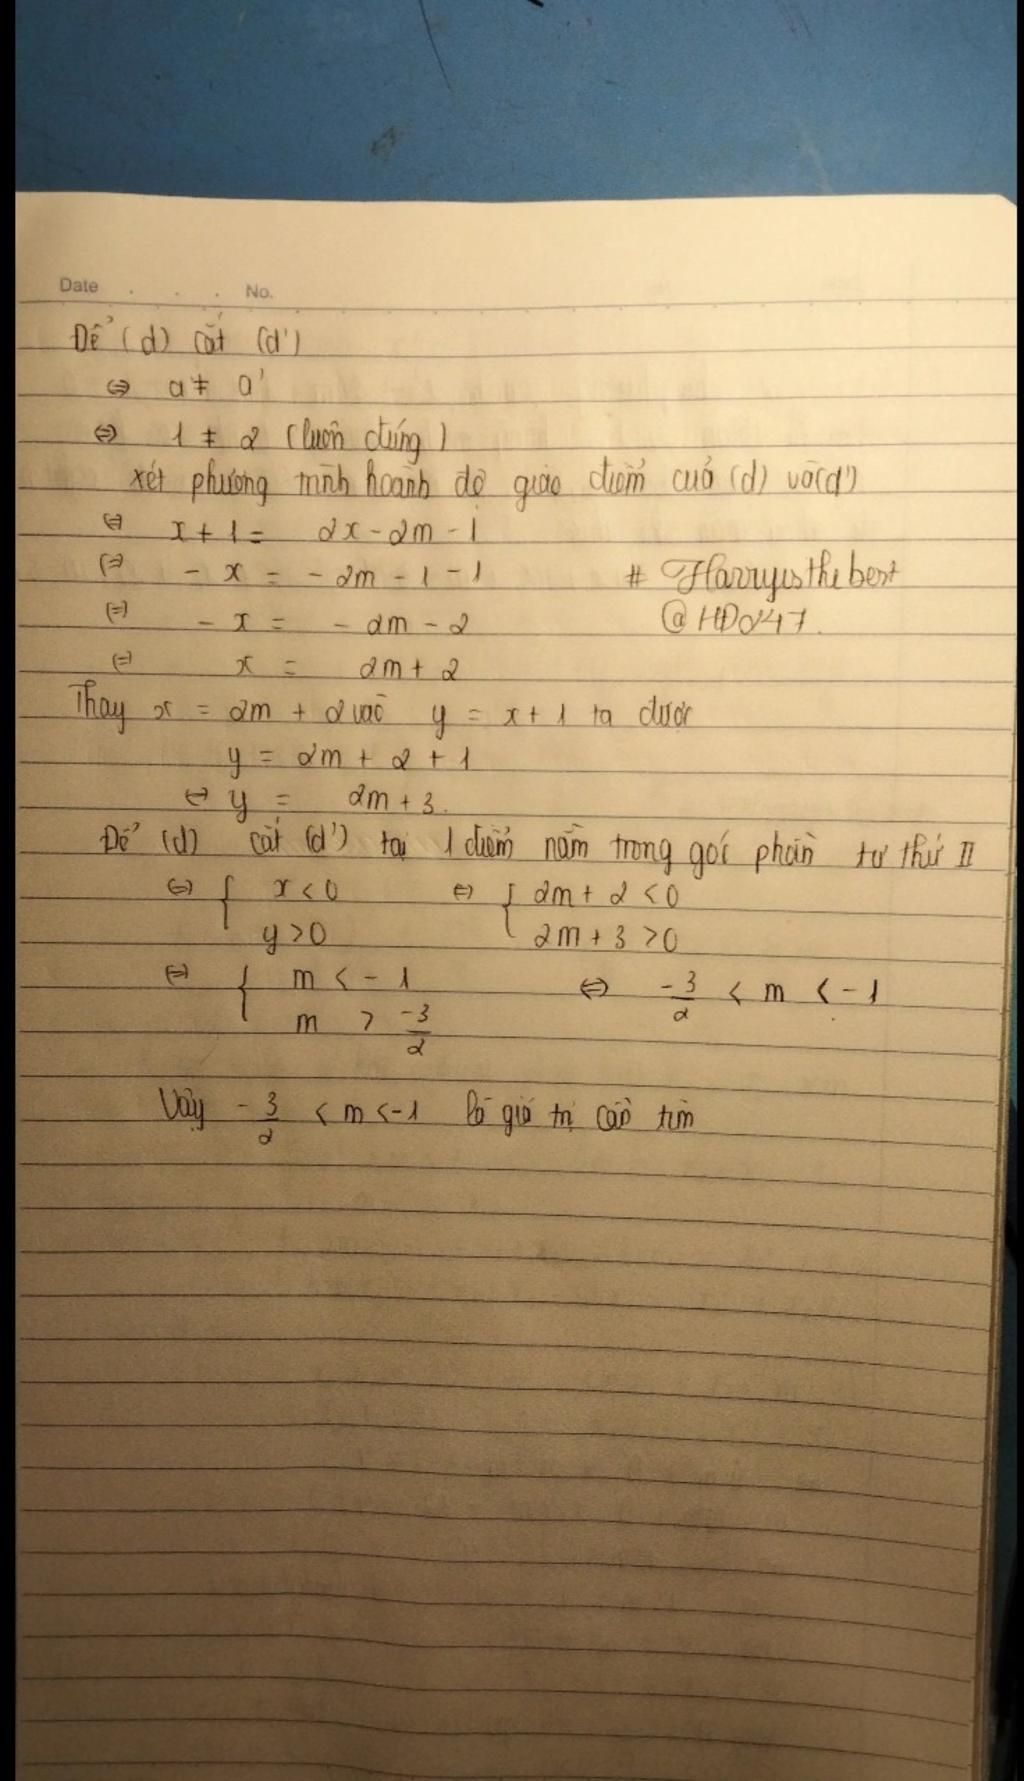 Date . . . No.
Để (d) cắt (d')
⇔ a ≠ a'
⇔ 1 ≠ 2 (luôn đúng)
xét phương trình hoành độ giao điểm của (d) và (d')
⇔ x + 1 = 2x - 2m - 1
⇔ - x = - 2m - 1 - 1 # Harryisthebest
⇔ - x = - 2m - 2 @HD247.
⇔ x = 2m + 2
Thay x = 2m + 2 vào y = x + 1 ta được
y = 2m + 2 + 1
⇔ y = 2m + 3.
Để (d) cắt (d') tại 1 điểm nằm trong góc phần tư thứ II
⇔ { x < 0 ⇔ { 2m + 2 < 0
y > 0 2m + 3 > 0
⇔ { m < - 1 ⇔ -3/2 < m < - 1
m > -3/2
Vậy - 3/2 < m < -1 là giá trị cần tìm